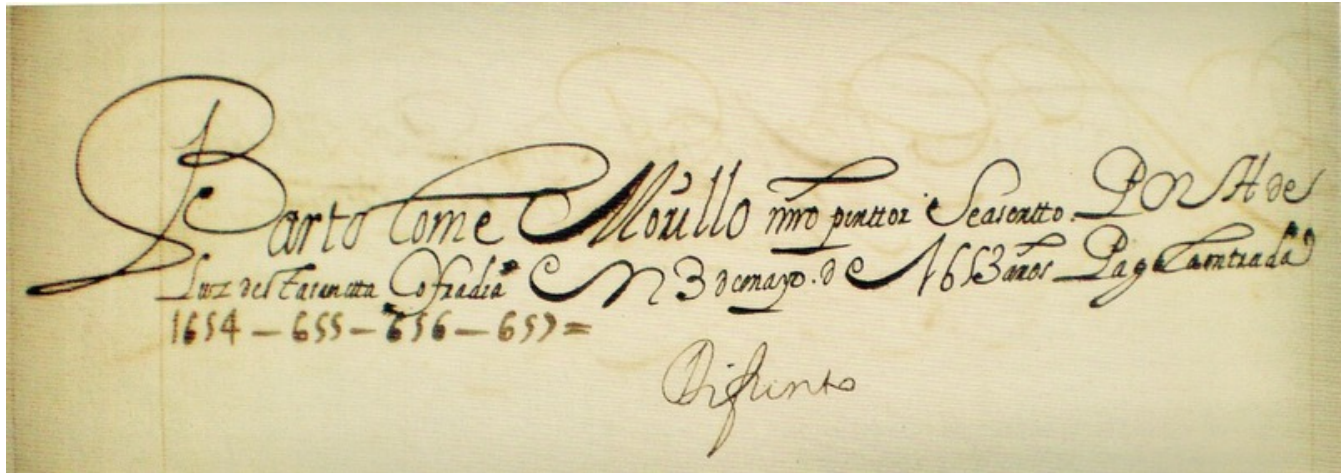 Bartolome Morillo mro pinttor Seasentto. POR H de
Luz destasancta Cofradia EN 3 demayo. de 1653 años Pago laentrada
1654 — 655 — 656 — 657 =
Difunto